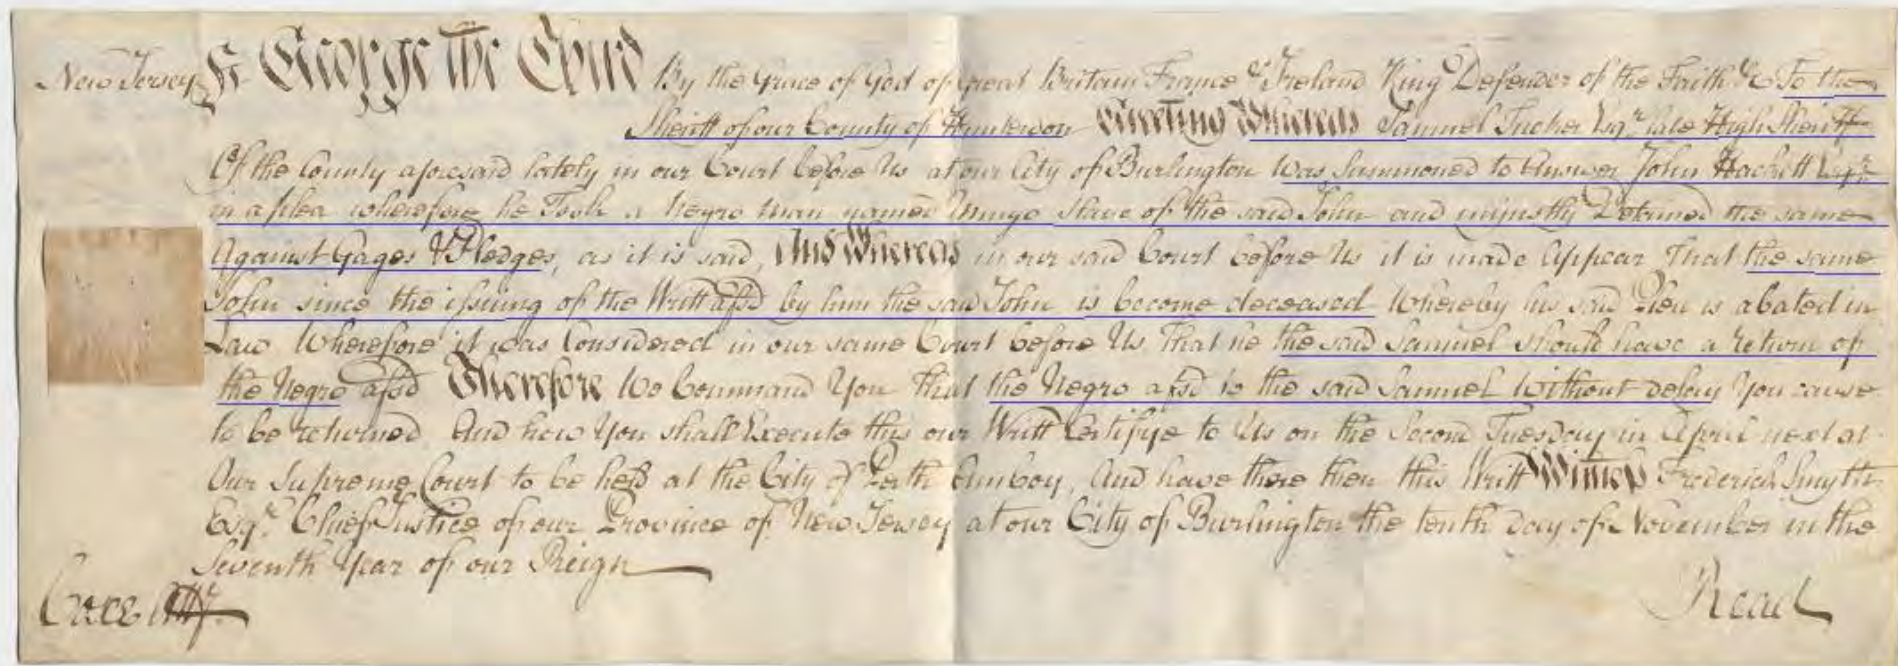 New Jersey ss George the Third By the Grace of God of Great Britain France & Ireland King Defender of the Faith &c To the
Sheriff of our County of Hunterdon Greeting Whereas Samuel Tucker Esqr. late High Sheriff
Of the County aforesaid lately in our Court before Us at our City of Burlington was summoned to Answer John Hackett Esqr.
in a plea wherefore he Took a Negro man named Mingo Slave of the said John and unjustly Detained the same
Against Gages & Pledges, as it is said, And Whereas in our said Court before Us it is made Appear That the same
John since the issuing of the Writt afsd by him the said John is become deceased Whereby his said Plea is abated in
Law Wherefore it was Considered in our same Court before Us That he the said Samuel should have a return of
the Negro afsd Therefore We Command You That the Negro afsd to the said Samuel Without delay You cause
to be returned And how You shall Execute this our Writt Certifye to Us on the Second Tuesday in April next at
Our Supreme Court to be held at the City of Perth Amboy, And have there then this Writt Witness Frederick Smyth
Esqr. Chief Justice of our Province of New Jersey at our City of Burlington the tenth Day of November in the
Seventh Year of our Reign
Coxe Atty.
Read